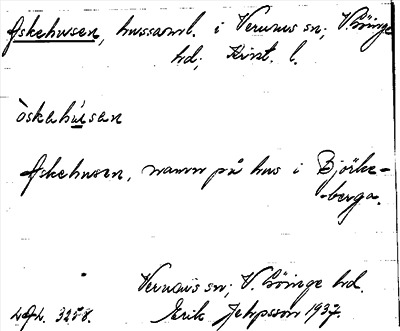 Askehusen, hussaml. i Verums sn; V. Göinge
hd; Krist. l.
òskahúsan
Askehusen, namn på hus i Björke-
-berga.
Verums sn; V. Göinge hd.
Erik Jeppsson 1937.